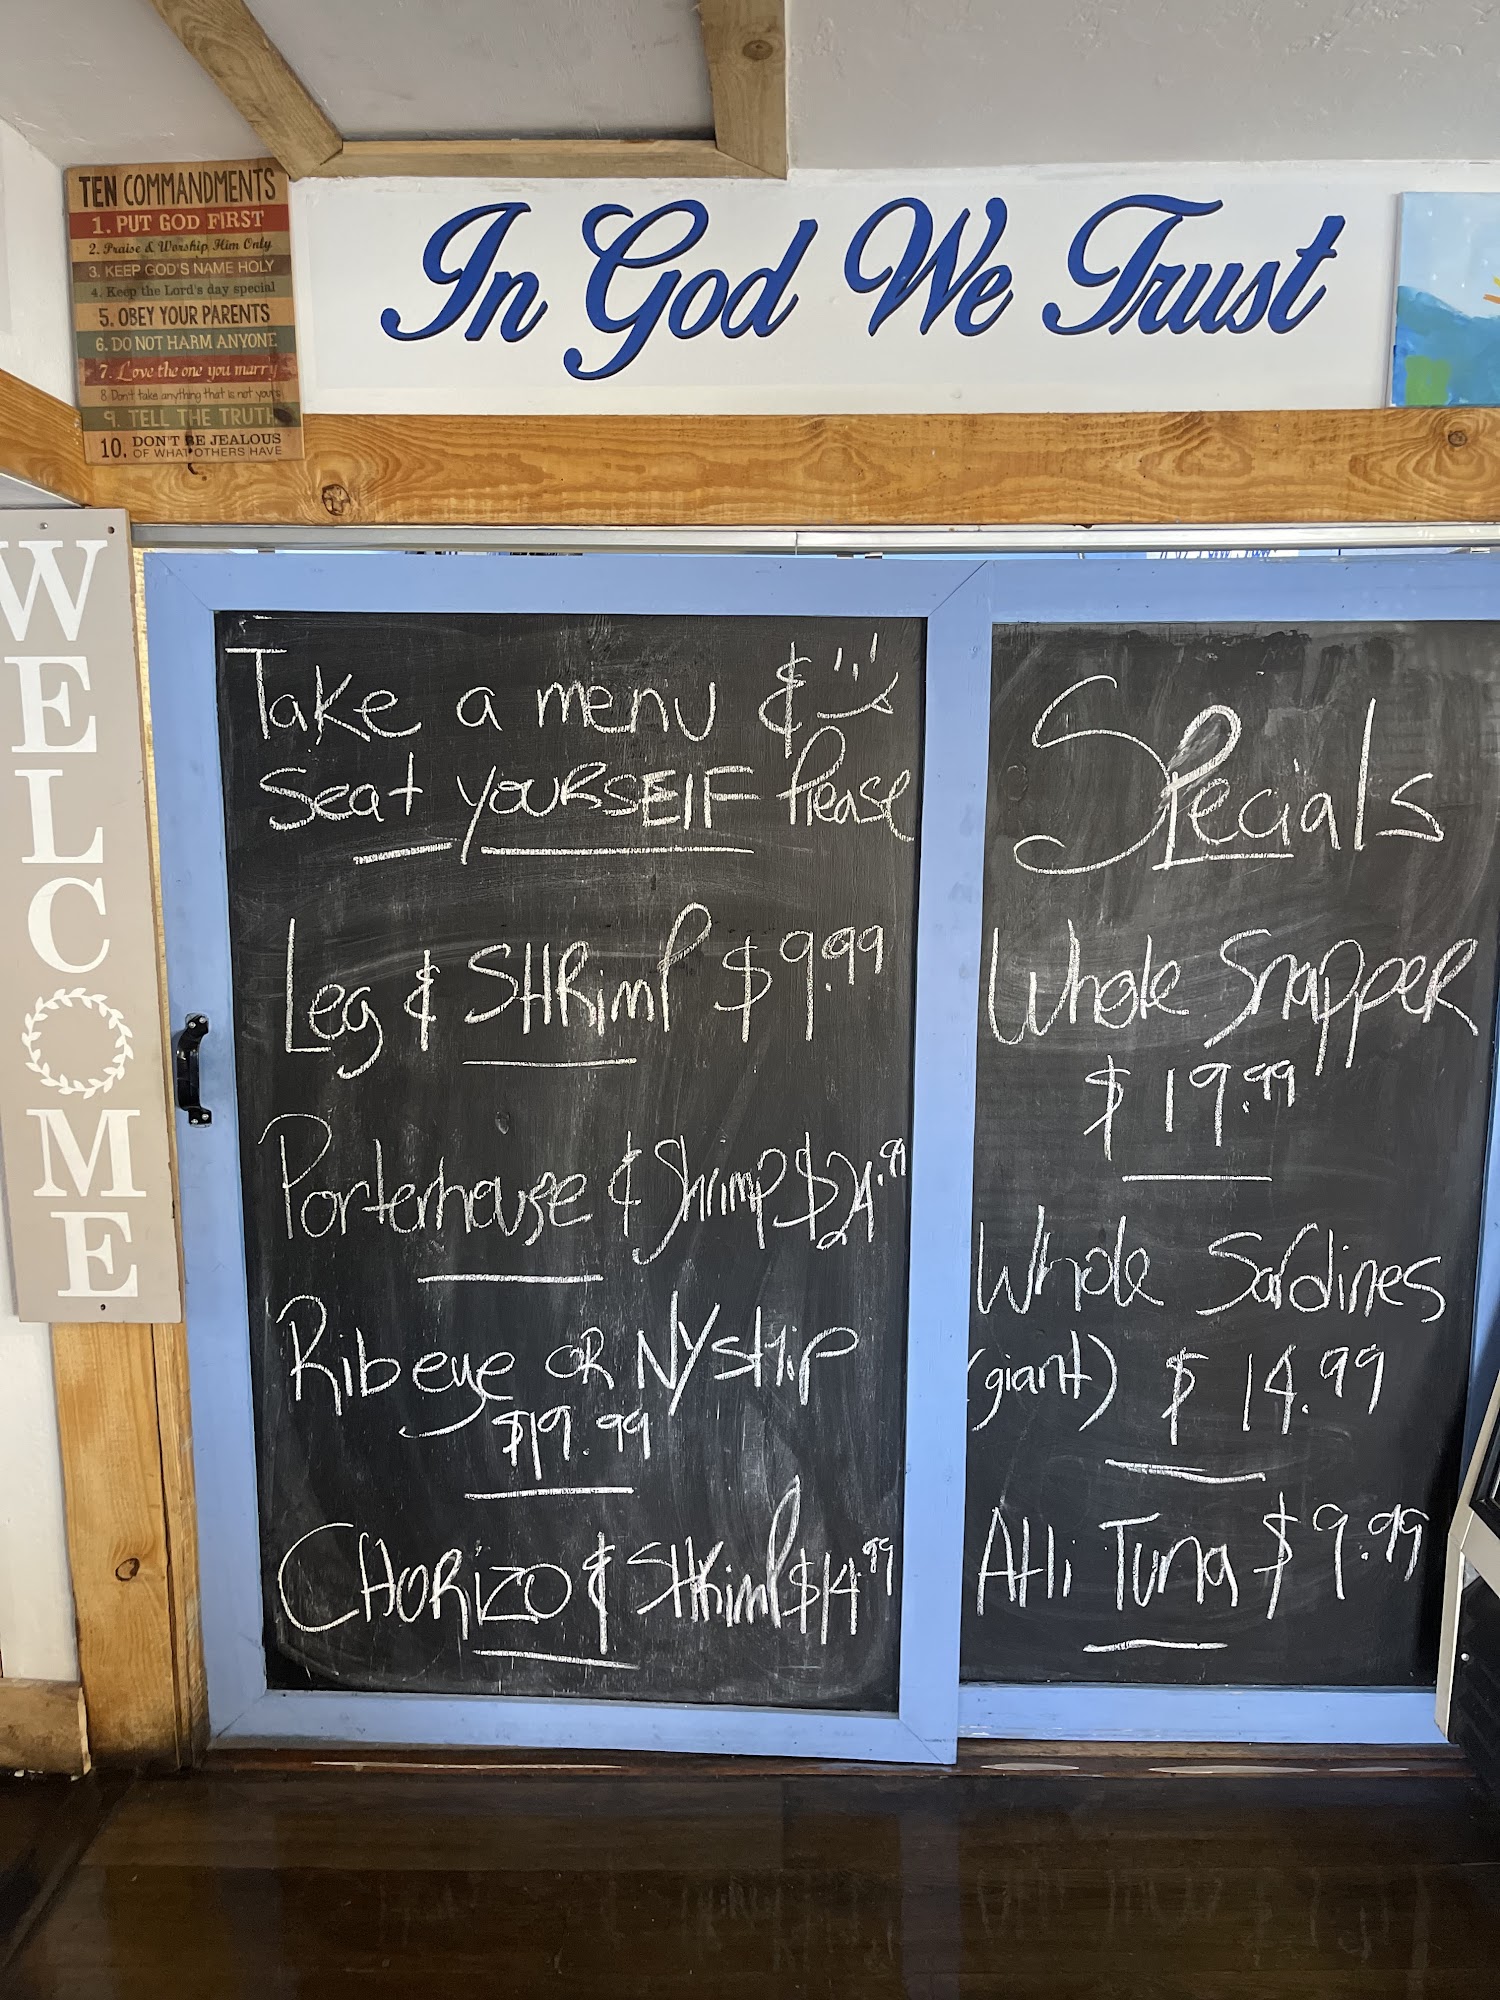 TEN COMMANDMENTS
1. PUT GOD FIRST
2. Praise & Worship Him Only
3. KEEP GOD'S NAME HOLY
4. Keep the Lord's day special
5. OBEY YOUR PARENTS
6. DO NOT HARM ANYONE
7. Love the one you marry
8. Don't take anything that is not yours
9. TELL THE TRUTH
10. DON'T BE JEALOUS
OF WHAT OTHERS HAVE
In God We Trust
WELCOME
Take a menu &
Seat YOURSElF Please
Leg & SHRimP $9.99
Porterhouse & Shrimp $24.99
Ribeye OR NY stRip
$19.99
CHORIZO & SHRimP $14.99
Specials
Whole Snapper
$19.99
Whole Sardines
(giant) $14.99
AHi Tuna $9.99